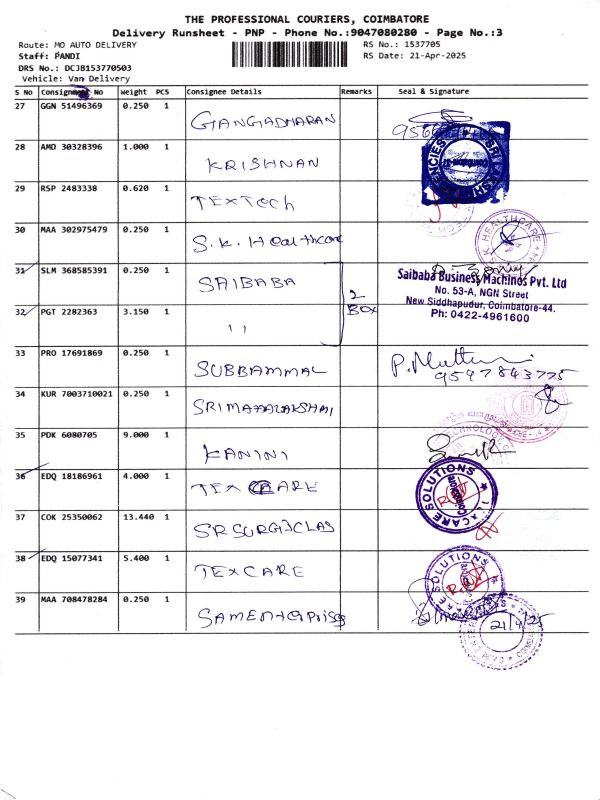 THE PROFESSIONAL COURIERS, COIMBATORE
Delivery Runsheet - PNP - Phone No.:9047080280 - Page No.:3
Route: MO AUTO DELIVERY RS No.: 1537705
Staff: PANDI RS Date: 21-Apr-2025
DRS No.: DCJB153770503
Vehicle: Van Delivery
S No Consignment No Weight PCS Consignee Details Remarks Seal & Signature
27 GGN 51496369 0.250 1 GANGADHARAN
28 AMD 30328396 1.000 1 KRISHNAN
29 RSP 2483338 0.620 1 TEXTech
30 MAA 302975479 0.250 1 S.K. Healthcare S.K. HEALTHCARE
31 SLM 368585391 0.250 1 SAIBABA 2 BOX
Saibaba Business Machines Pvt. Ltd
No. 53-A, NGN Street
New Siddhapudur, Coimbatore-44.
Ph: 0422-4961600
32 PGT 2282363 3.150 1 ''
33 PRO 17691869 0.250 1 SUBBAMMAL
9597843775
34 KUR 7003710021 0.250 1 SRIMAHALAKSHMI
35 PDK 6080705 9.000 1 KANINI
36 EDQ 18186961 4.000 1 TEXCARE TEXCARE SOLUTIONS Coimbatore
37 COK 25350062 13.440 1 SR SURGICLAS
38 EDQ 15077341 5.400 1 TEXCARE
39 MAA 708478284 0.250 1 SAMENterprises 21/4/25